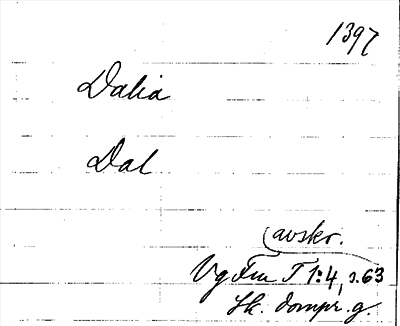 1397
Dalia
Dal
avskr.
Vg Fm T 1:4, s.63
Sk. dompr. g.